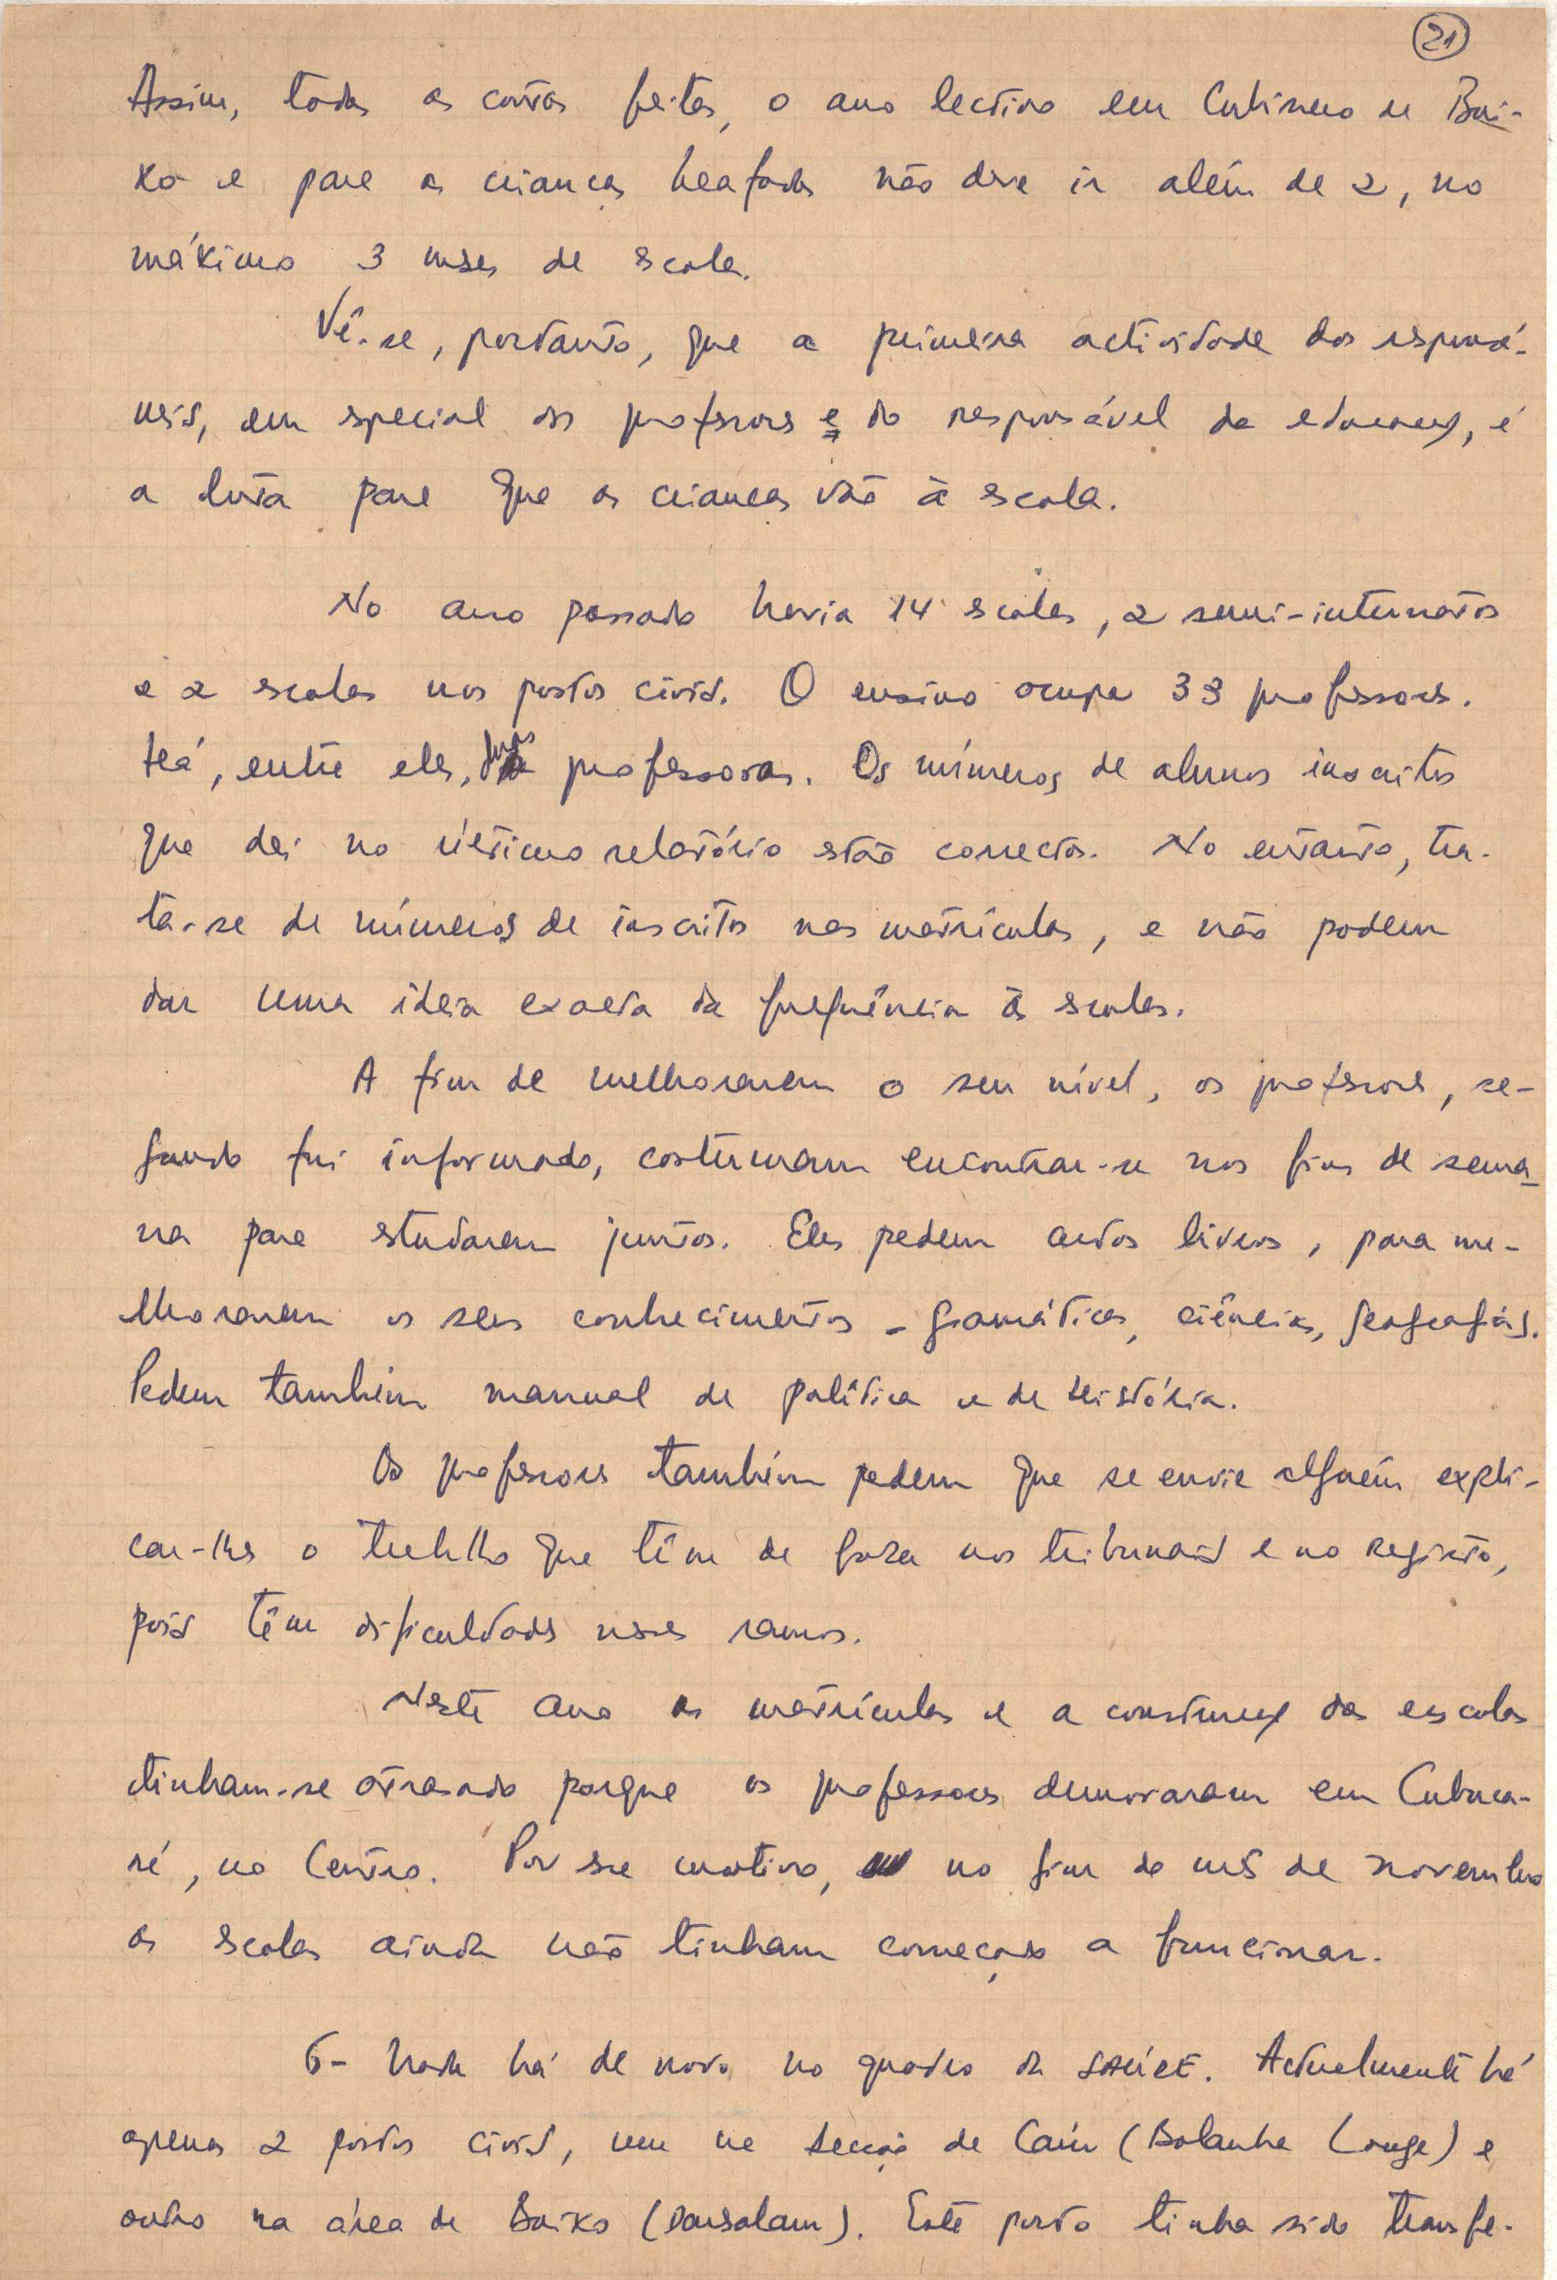 21
Assim, todas as contas feitas, o ano lectivo em Cubisseco de Bai-
xo e para as crianças beafadas não deve ir além de 2, no
máximo 3 meses de escola.
Vê-se, portanto, que a primeira actividade dos responsá-
veis, em especial dos professores e do responsável da educação, é
a luta para que as crianças vão à escola.
No ano passado havia 14 escolas, 2 semi-internatos
e 2 escolas nos postos civis. O ensino ocupa 33 professores.
Há, entre eles, professoras. Os números de alunos inscritos
que dei no último relatório estão correctos. No entanto, tra-
ta-se de números de inscritos nas matrículas, e não podem
dar uma ideia exacta da frequência às escolas.
A fim de melhorarem o seu nível, os professores, se-
gundo fui informado, costumam encontrar-se nos fins de sema-
na para estudarem juntos. Eles pedem certos livros, para me-
lhorarem os seus conhecimentos - gramáticas, ciências, geografias.
Pedem também manual de política e de História.
Os professores também pedem que se envie alguém expli-
car-lhes o trabalho que têm de fazer nos tribunais e no registo,
pois têm dificuldades nesses ramos.
Neste ano as matrículas e a construção das escolas
tinham-se atrasado porque os professores demoraram em Cubuca-
ré, no Centro. Por esse motivo, no fim do mês de novembro
as escolas ainda não tinham começado a funcionar.
6- Nada há de novo no quadro da SAÚDE. Actualmente há
apenas 2 postos civis, um na secção de Caín (Bolanha Longe) e
outro na área de Baixo (Darsalam). Este posto tinha sido transfe-